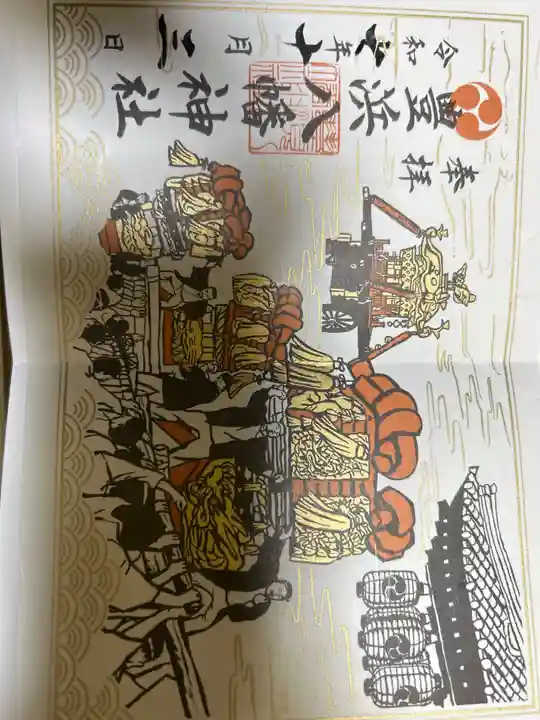 奉拝
豊浜
八幡神社
令和六年十月三日